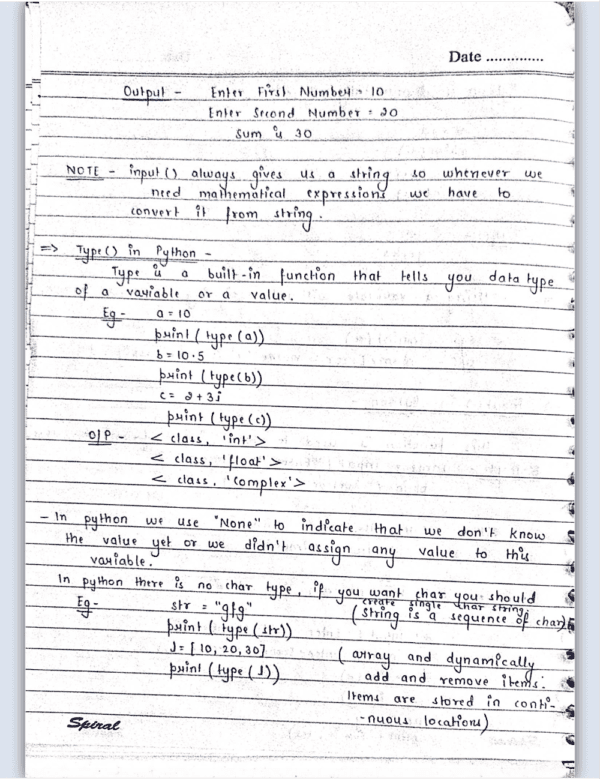 Date ..............
Output - Enter First Number = 10
Enter Second Number = 20
Sum is 30
NOTE - input() always gives us a string so whenever we
need mathematical expressions we have to
convert it from string.
=> Type() in Python -
Type is a built-in function that tells you data type
of a variable or a value.
Eg - a = 10
print (type (a))
b = 10.5
print (type(b))
c = 2+3j
print (type (c))
O/P - < class, 'int'>
< class, 'float'>
< class, 'complex'>
- In python we use "None" to indicate that we don't know
the value yet or we didn't assign any value to this
variable.
In python there is no char type, if you want char you should
create single char string
Eg - str = "gfg" (String is a sequence of char)
print (type (str))
J = [10, 20, 30] (array and dynamically
print (type (J)) add and remove items.
Items are stored in conti-
-nuous locations)
Spiral